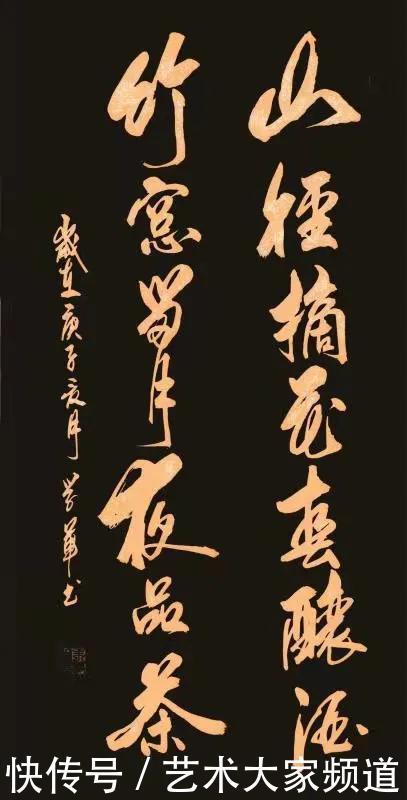 山徑摘花春釀酒
竹窓留月夜品茶
歲在庚子夏月书
快传号/艺术大家频道